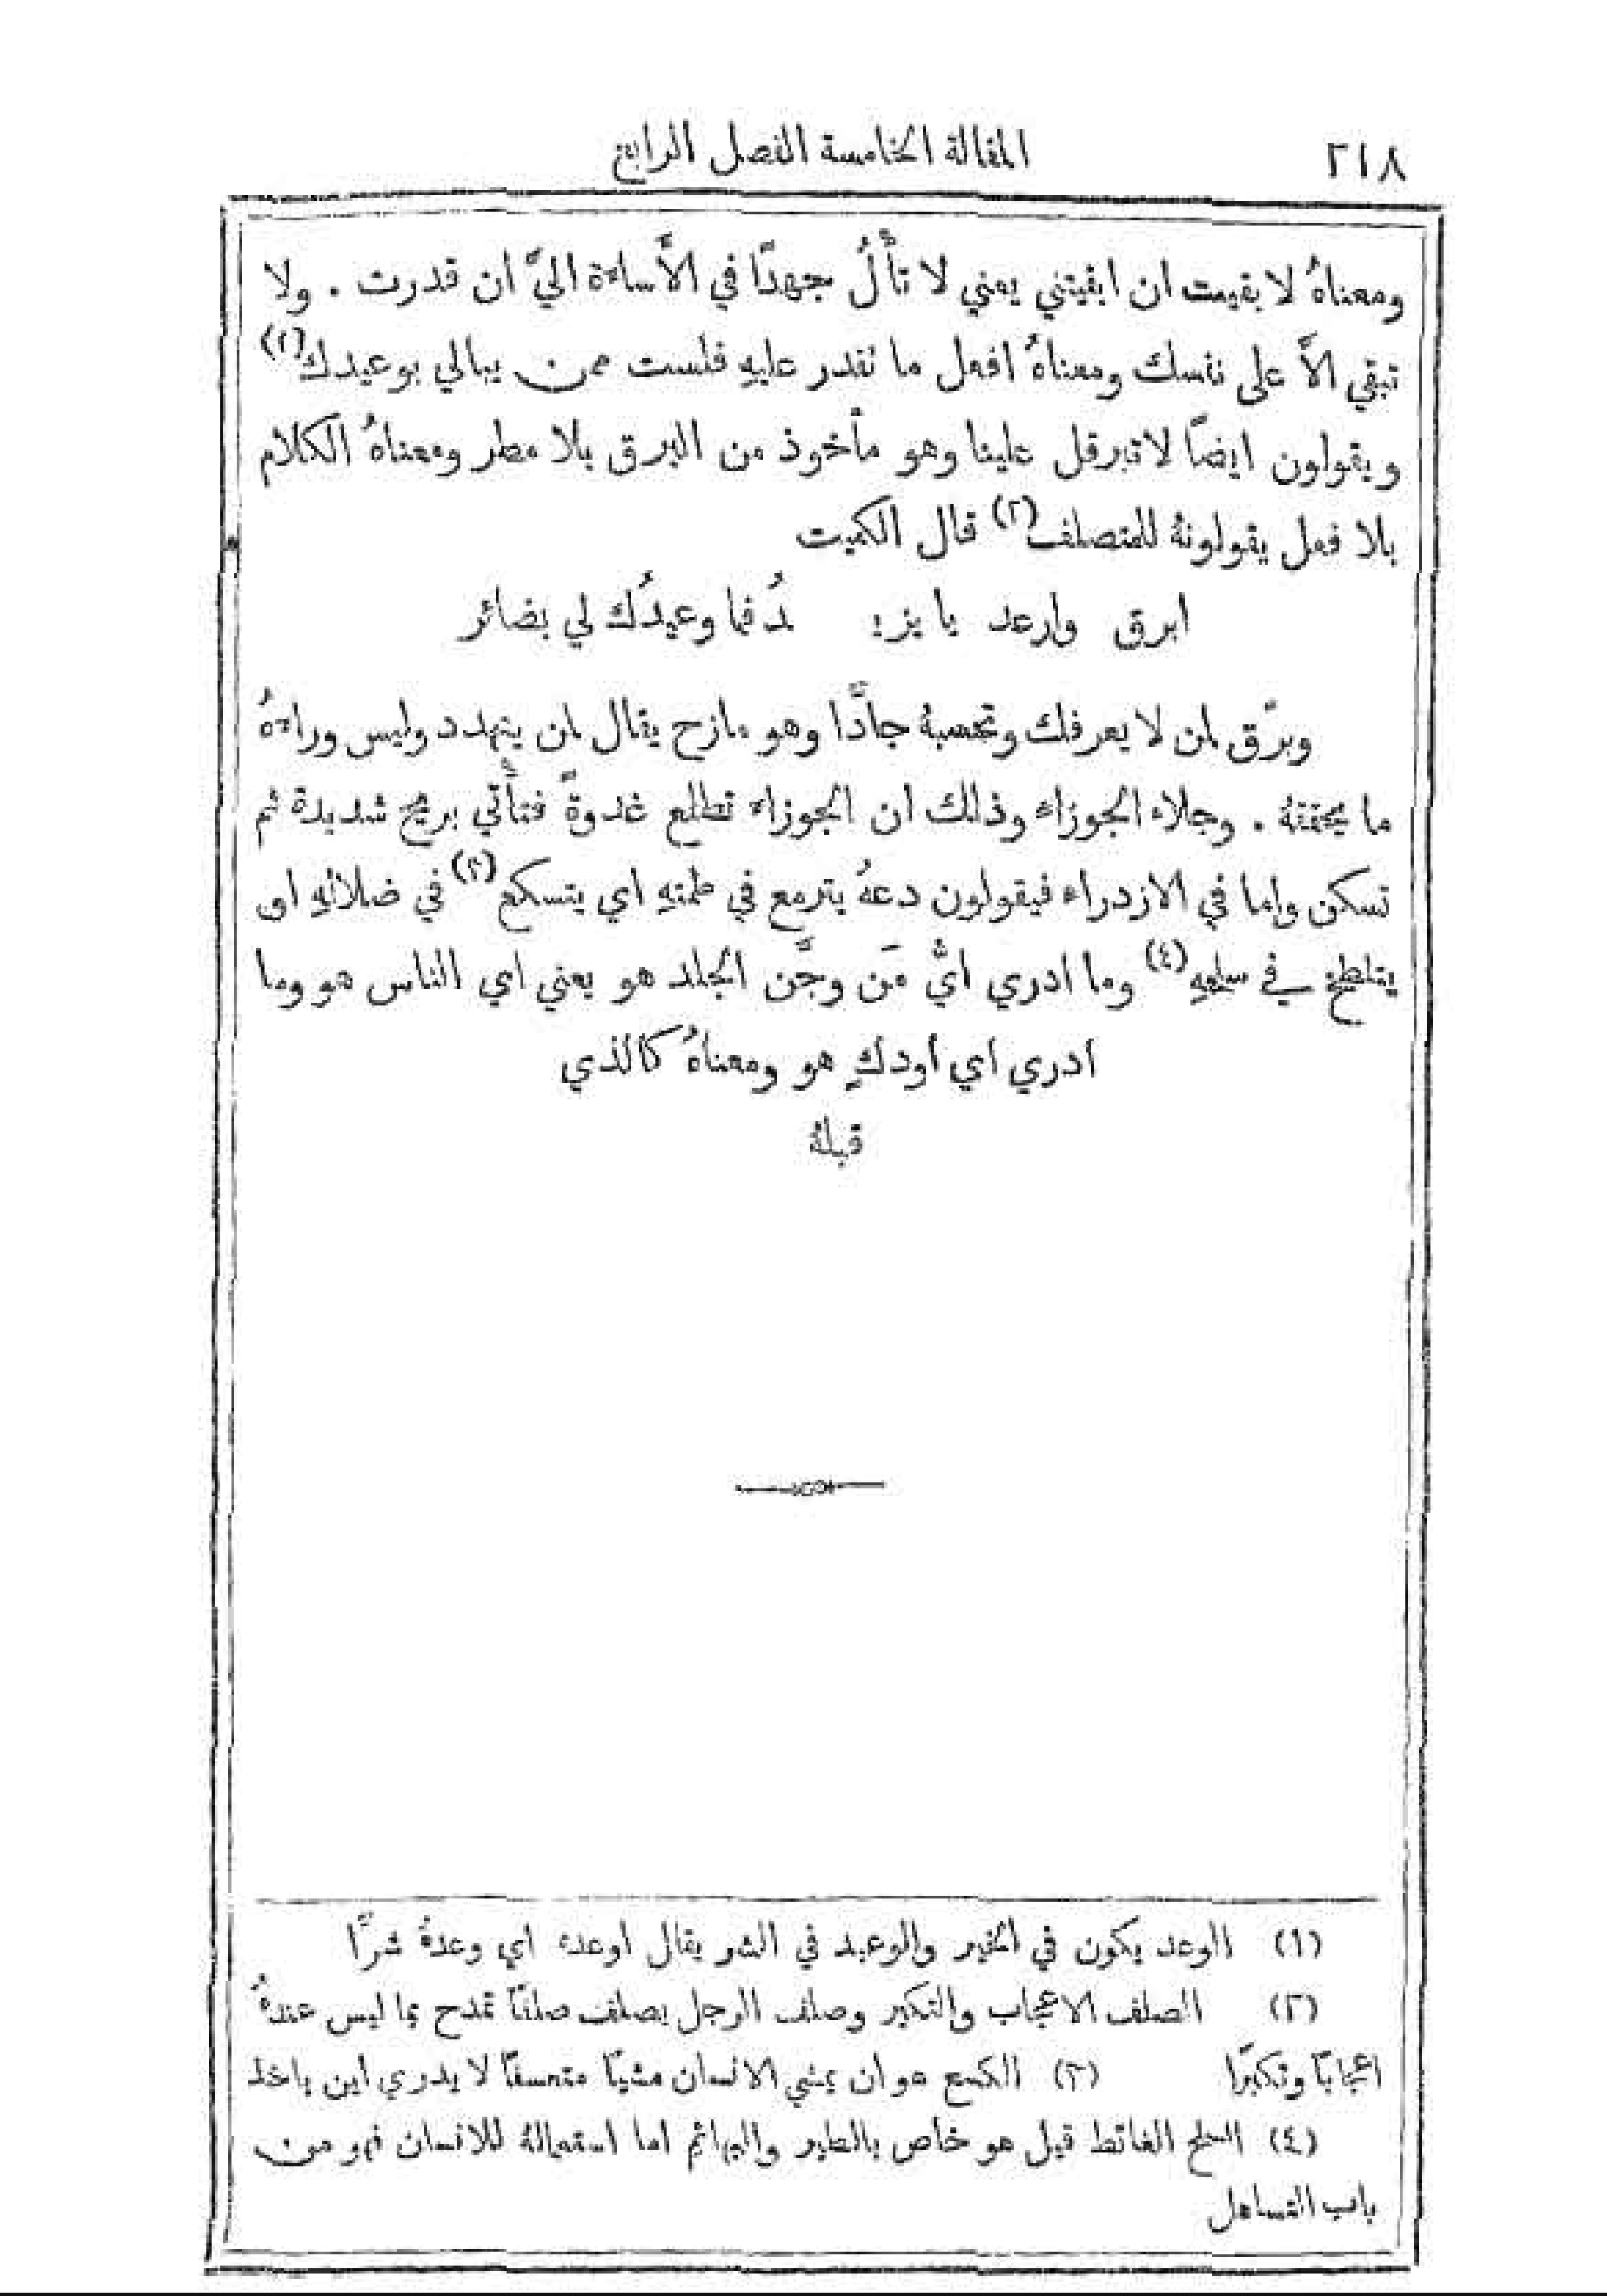 ٢١٨
المقالة الخامسة الفصل الرابع
ومعناهُ لا بقيت ان ابقيتني يعني لا تأْلُ جهدًا في الأساءة اليّ ان قدرت . ولا
تبقي الاّ على نفسك ومعناهُ افعل ما تقدر عليهِ فلست ممن يبالي بوعيدك(١)
ويقولون ايضًا لا تبرقل علينا وهو مأخوذ من البرق بلا مطر ومعناهُ الكلام
بلا فعل يقولونهُ للمتصلف(٢) قال الكميت
ابرق وارعد يا يزيـ دُ فما وعيدُك لي بضائر
وبرّق لمن لا يعرفك وتحسبهُ جادًّا وهو مازح يقال لمن يتهدد وليس وراءهُ
ما يحققهُ . وجلاء الجوزاء وذلك ان الجوزاء تطلع غدوةً فتأتي بريح شديدة ثم
تسكن واما في الازدراء فيقولون دعهُ يترمع في طمتهِ اي يتسكع(٣) في ضلالتهِ او
يتلطخ في سلحهِ(٤) وما ادري ايُّ مَن وجَّن الجلد هو يعني اي الناس هو وما
ادري اي أودك هو ومعناهُ كالذي
قبلهُ
(١) الوعد يكون في الخير والوعيد في الشر يقال اوعدهُ اي وعدهُ شرًّا
(٢) الصلف الاعجاب والتكبر وصلف الرجل يصلف صلفًا تمدح بما ليس عندهُ
اعجابًا وتكبرًا (٣) الكسع هو ان يمشي الانسان مشيًا متعسفًا لا يدري أين ياخذ
(٤) السلح الغائط قيل هو خاص بالطير والبهائم اما استعمالهُ للانسان فهو من
باب التساهل